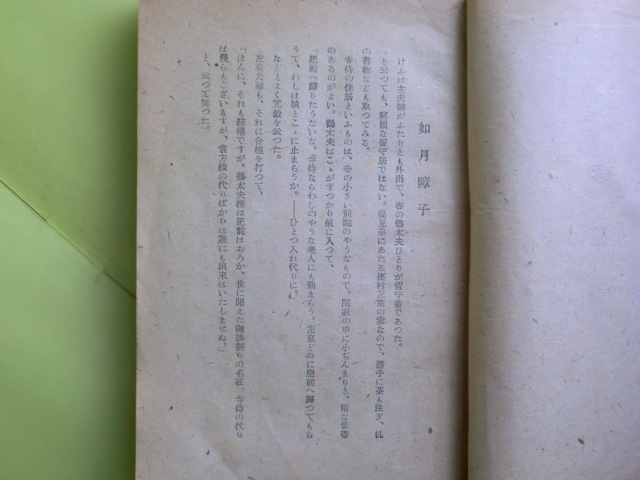 如月障子
けふは主夫婦がふたりとも外出で、客の鶴太夫ひとりが留守番であつた。
と云つても、窮屈な留守居ではない。従兄弟にあたる左京の家なので、勝手に茶も注ぎ、机
の書物なども取つてみる。
寺侍の住居といふものは、寺の小さい別院のやうなもので、閑寂の中に小ぢんまりと、俗な世帯
のあるのがよい。鶴太夫はこゝがすつかり気に入つて、
「肥前へ帰りたうないな。寺侍ならわしのやうな老人にも勤まらう。左京どのに肥前へ帰つてもら
うて、わしは娘とこゝに止まらうか。――ひとつ入れ代りに。」
などとよく冗談を云つた。
左京夫婦も、それに合槌を打つて、
「ほんに、それも結構ですが、鶴太夫様は肥前はおろか、世に聞えた名匠、寺侍の代り
は幾らもございますが、貴方様の代りばかりは誰にも出来はいたしませぬ。」
と、云つて笑つた。